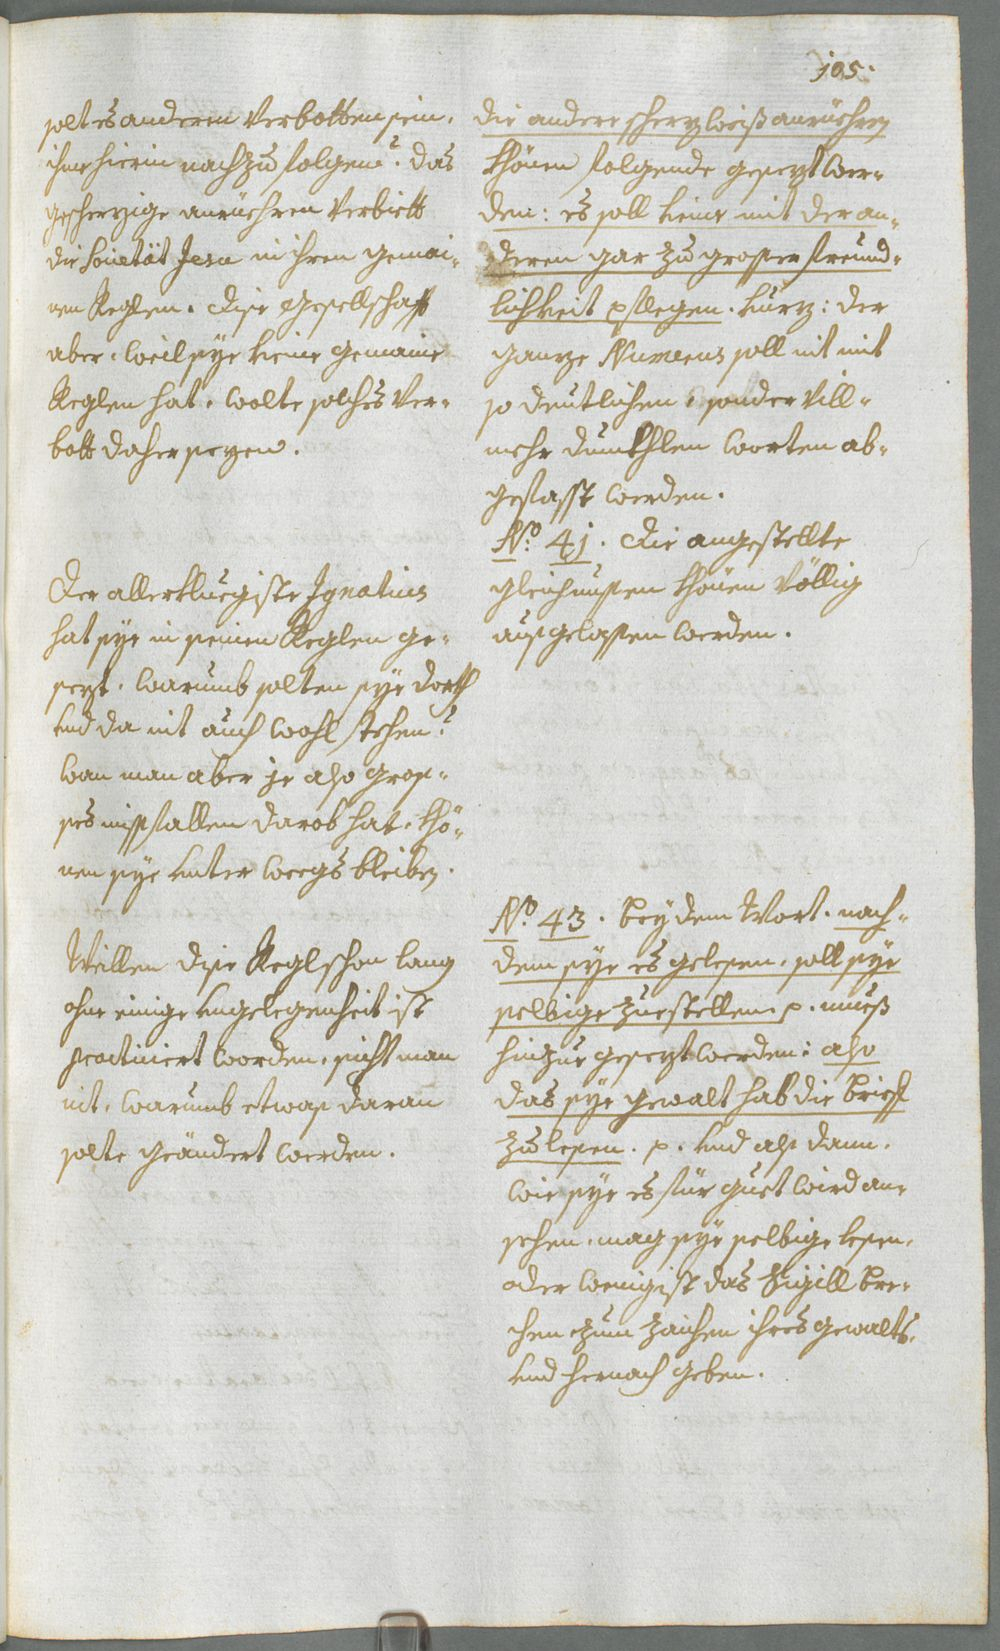 105.
solt es anderen verbotten sein,
ihme hierin nachzufolgen? das
gscherzige anrüehren verbiett
die Societät Jesu in ihren gemai-
nen Reglen. dise gesellschafft
aber, weil sye keine gemaine
Reglen hat, wolte solches ver-
bott daher sezen.
Der allerkluegiste Ignatius
hat sye in seinen Reglen ge-
sezt, warumb solten sye dorth
und da nit auch wohl stehen?
wan man aber je also gros-
ses missfallen darob hat, khö-
nen sye unter weegs bleiben.
Weillen dise Regl schon lang
ohne einige ungelegenheit ist
practiciert worden, sicht man
nit, warumb etwas daran
solte geändert werden.
die andere scherzweiß anrüehren
khönen folgende gesezt wer-
den: es soll keine mit der an-
deren gar zu grosser freund-
lichkeit pflegen. kurz: der
ganze Numerus soll nit mit
so deutlichen, sonder vill-
mehr dunkhlen worten ab-
gefasst werden.
No. 41. die angestellte
gleichnussen khönen völlig
ausgelassen werden.
No. 43. bey dem Wort, nach-
dem sye es gelesen, soll sye
selbige zuestellen. p. mueß
hinzue gesezt werden: also
das sye gewalt hab die brieff
zu lesen. p. und als dann,
wie sye es für guet wird an-
sehen, mag sye selbige lesen,
oder wenigist das Sigill bre-
chen zum zaichen ihres gewalts,
und hernach geben.